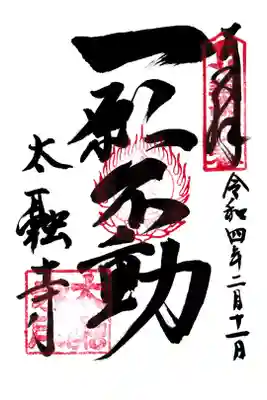 奉拝
令和四年二月十一日
一願不動
太融寺